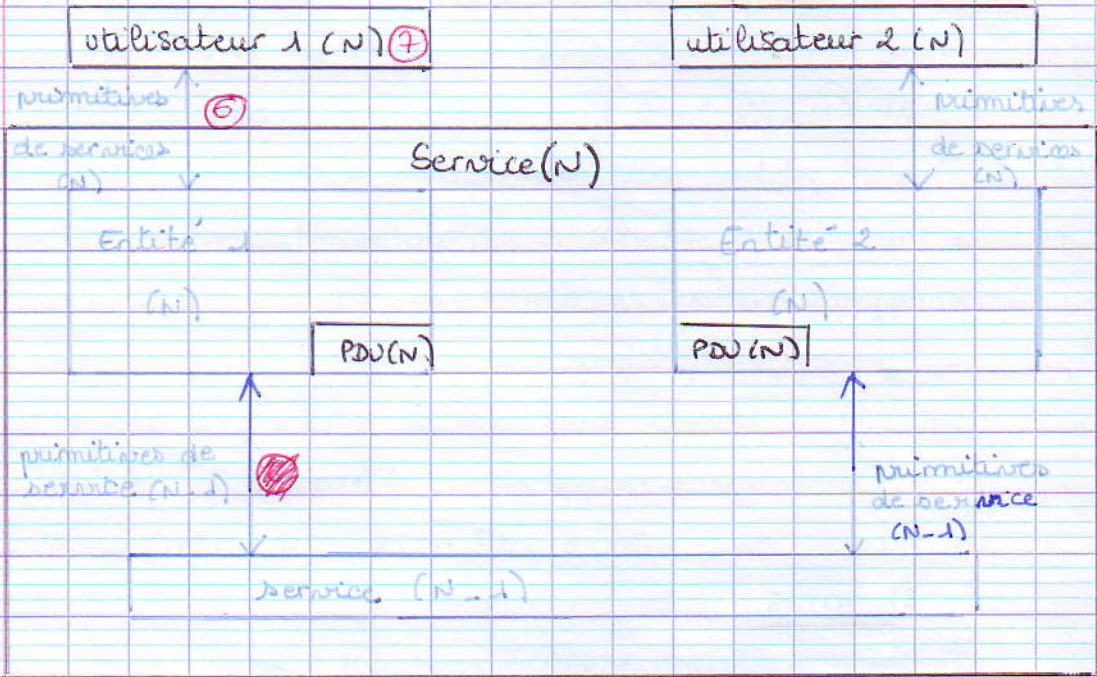 utilisateur 1 (N) 7
utilisateur 2 (N)
primitives
de services
(N)
6
primitives
de services
(N)
Service (N)
Entité 1
(N)
Entité 2
(N)
PDU(N)
PDU(N)
primitives de
service (N-1)
primitives
de service
(N-1)
service (N-1)